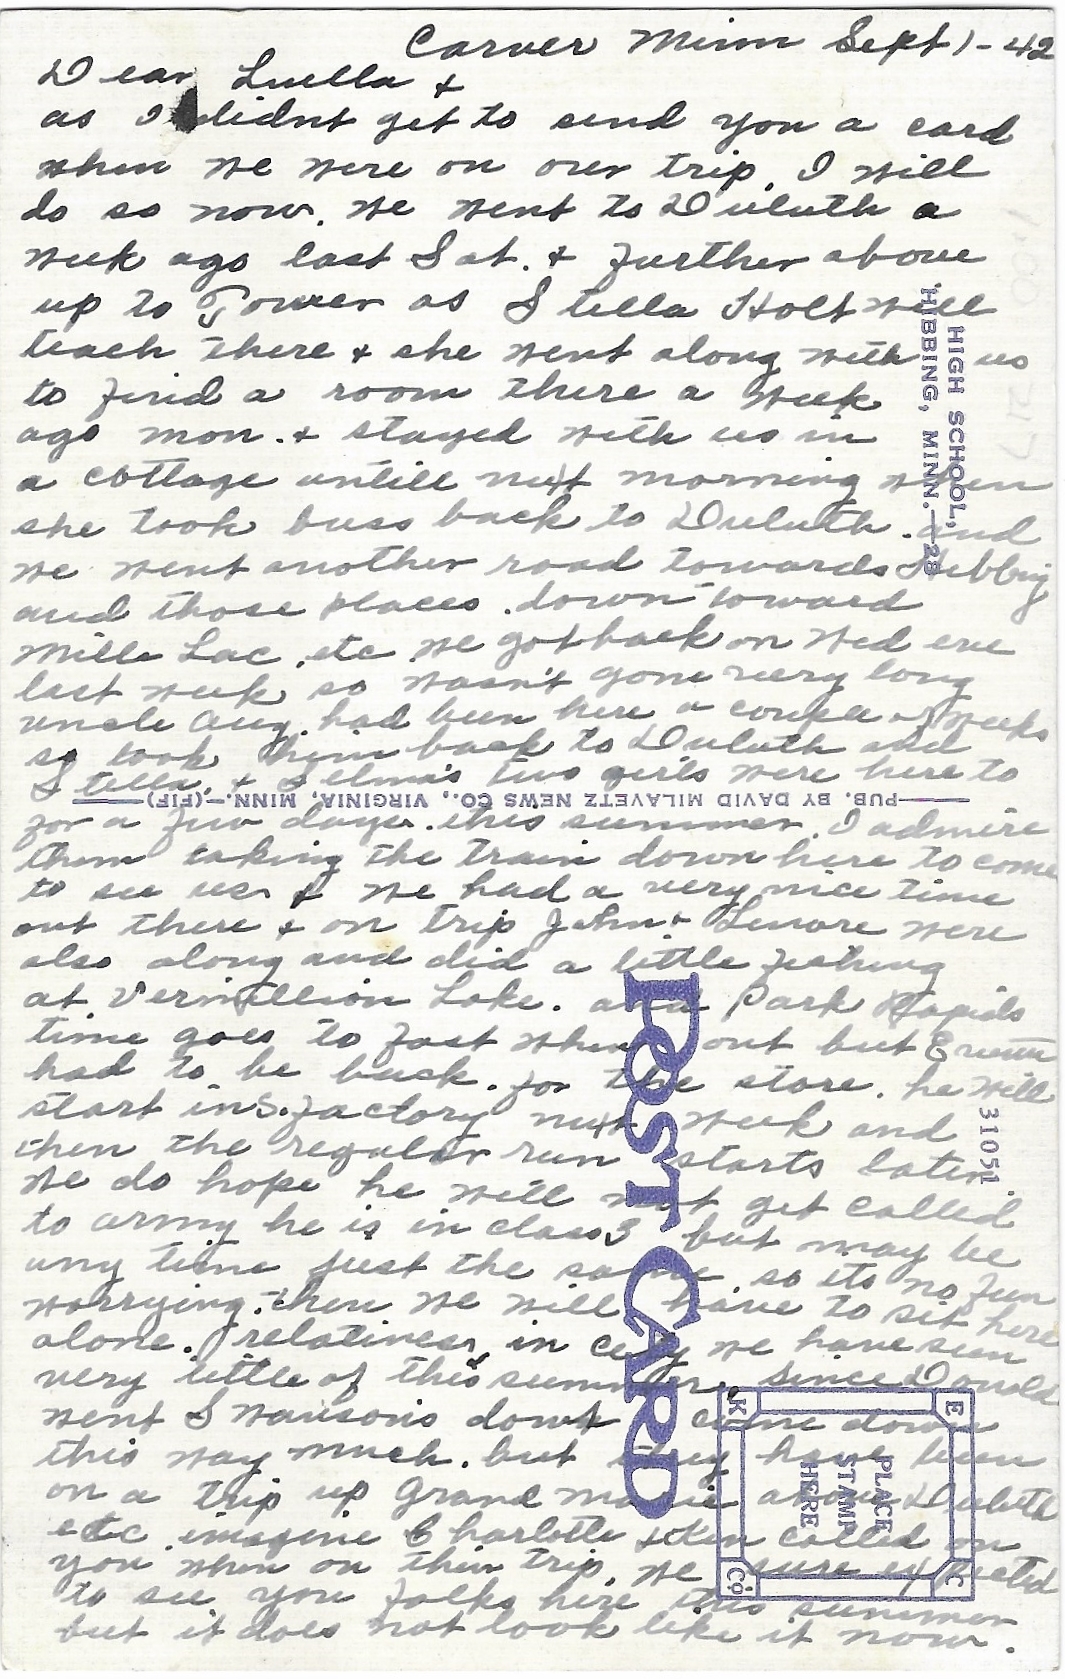 Carver Minn Sept 1-42
Dear Luella +
as I didnt get to send you a card
when we were on our trip. I will
do so now. we went to Duluth a
week ago last Sat. + further above
up to Tower as Stella Holt will
teach there + she went along with us
to find a room there a week
ago mon. + stayed with us in
a cottage untill next morning when
she took buss back to Duluth. and
we went another road towards Hibbing
and those places. down toward
Mille Lac, etc we got back on Wed eve
last week, so wasn't gone very long
uncle Aug. had been here a couple of weeks
so took him back to Duluth and
Stella, + Selma's two girls were here to
for a few days. this summer. I admire
them taking the train down here to come
to see us. + we had a very nice time
out there + on trip John + Lenore were
also along and did a little fishing
at Vermillion Lake. and Park Rapids
time goes to fast when out but
had to be back. for the store. he will
start in S. factory next week and
then the regular run starts later.
we do hope he will not get called
to army he is in class 3 but may be
any time just the same. so its no fun
worrying. then we will have to sit here
alone. relatives, in city we have seen
very little of this summer. since Donald
went Swansons dont come down
this way much. but they have been
on a trip up Grand Marie above Duluth
etc. imagine Charlotte + Ken called on
you when on their trip. we sure expected
to see you folks here this summer
but it does not look like it now.
HIGH SCHOOL,
HIBBING, MINN.—28
PUB. BY DAVID MILAVETZ NEWS CO., VIRGINIA, MINN.—(FIF)
POST CARD
31051
PLACE
STAMP
HERE
E K C Co